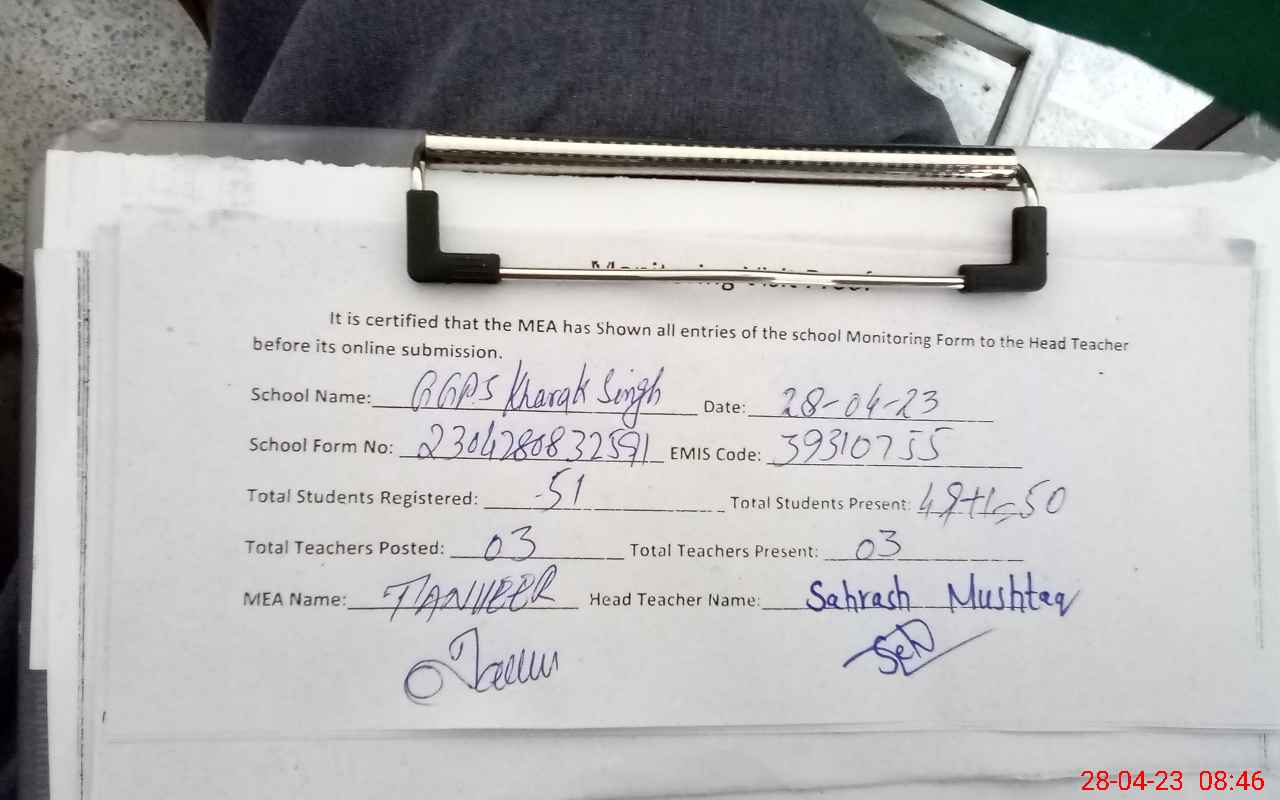 Monitoring Visit Proof
It is certified that the MEA has Shown all entries of the school Monitoring Form to the Head Teacher
before its online submission.
School Name: GGPS Kharak Singh Date: 28-04-23
School Form No: 2304280832591 EMIS Code: 39310755
Total Students Registered: 51 Total Students Present: 49+1=50
Total Teachers Posted: 03 Total Teachers Present: 03
MEA Name: TANVEER Head Teacher Name: Sahrash Mushtaq
28-04-23 08:46